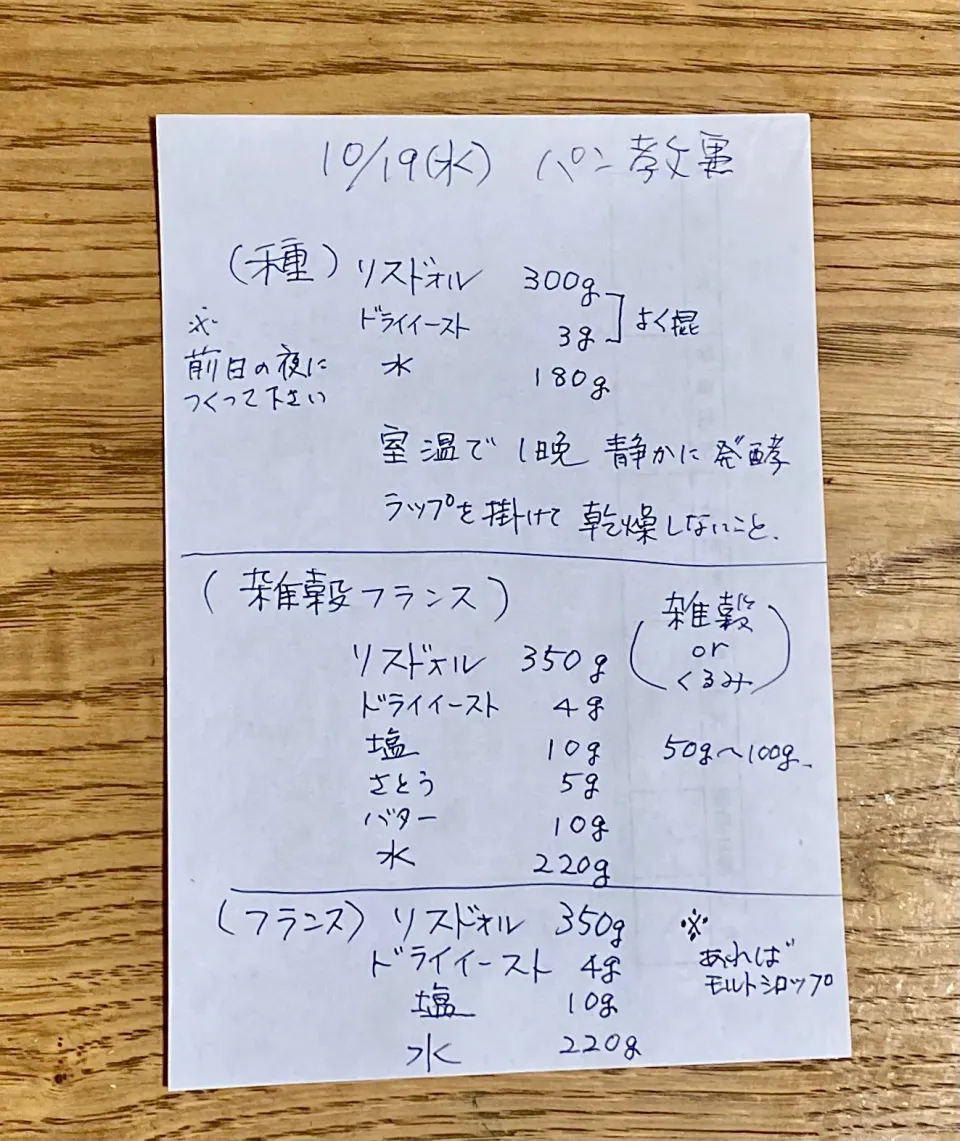 10/19(水) パン教室
(種) リスドォル 300g
ドライイースト 3g
よく混
水 180g
※
前日の夜に
つくって下さい
室温で1晩 静かに発酵
ラップを掛けて乾燥しないこと.
(雑穀フランス)
リスドォル 350g
ドライイースト 4g
塩 10g
さとう 5g
バター 10g
水 220g
(雑穀
or
くるみ)
50g〜100g
(フランス) リスドォル 350g
ドライイースト 4g
塩 10g
水 220g
※
あれば
モルトシロップ